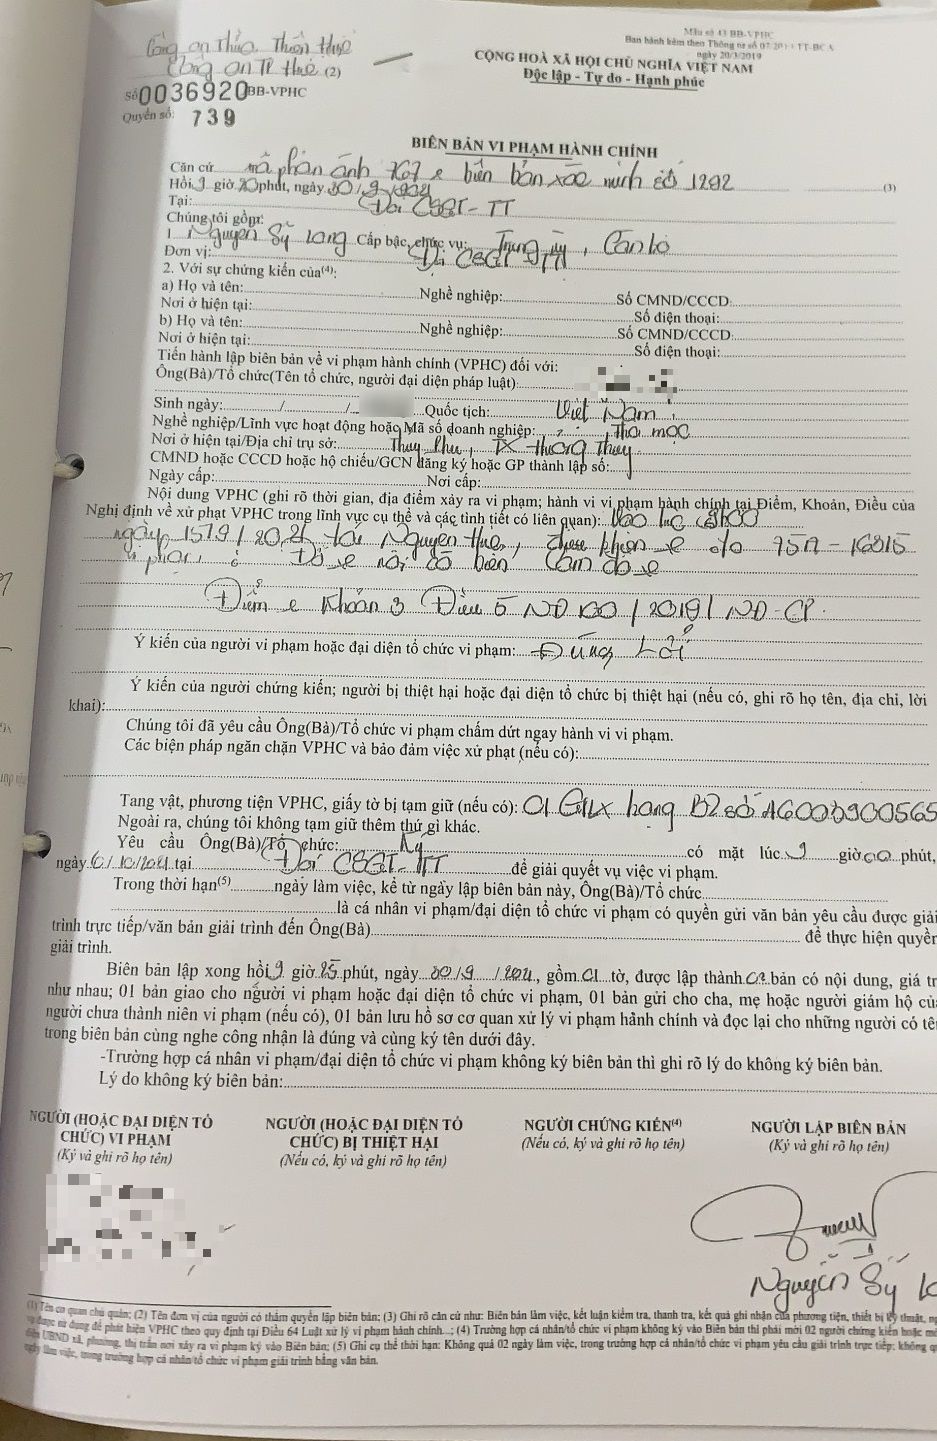 Mẫu số 43 BB-VPHC
Ban hành kèm theo Thông tư số 07/2019/TT-BCA
ngày 20/3/2019
Công an Thừa Thiên Huế
Công an TP Huế (2)
CỘNG HOÀ XÃ HỘI CHỦ NGHĨA VIỆT NAM
Độc lập - Tự do - Hạnh phúc
Số 0036920 BB-VPHC
Quyển số: 739
BIÊN BẢN VI PHẠM HÀNH CHÍNH
Căn cứ mã phản ánh 767 & biên bản xác minh số 1292 (3)
Hồi 9 giờ 20 phút, ngày 30/9/2021
Tại: Đội CSGT-TT
Chúng tôi gồm:
1. Nguyễn Sỹ Long Cấp bậc, chức vụ: Trung úy, Cán bộ
Đơn vị: Đội CSGT TT
2. Với sự chứng kiến của(4):
a) Họ và tên: Nghề nghiệp: Số CMND/CCCD:
Nơi ở hiện tại: Số điện thoại:
b) Họ và tên: Nghề nghiệp: Số CMND/CCCD:
Nơi ở hiện tại: Số điện thoại:
Tiến hành lập biên bản về vi phạm hành chính (VPHC) đối với:
Ông(Bà)/Tổ chức(Tên tổ chức, người đại diện pháp luật)
Sinh ngày: / / Quốc tịch: Việt Nam
Nghề nghiệp/Lĩnh vực hoạt động hoặc Mã số doanh nghiệp: Thợ mộc
Nơi ở hiện tại/Địa chỉ trụ sở: Thủy Phù, TX Hương Thủy
CMND hoặc CCCD hoặc hộ chiếu/GCN đăng ký hoặc GP thành lập số:
Ngày cấp: Nơi cấp:
Nội dung VPHC (ghi rõ thời gian, địa điểm xảy ra vi phạm; hành vi vi phạm hành chính tại Điểm, Khoản, Điều của
Nghị định về xử phạt VPHC trong lĩnh vực cụ thể và các tình tiết có liên quan): Vào lúc
ngày 15/9/2021 tại Nguyễn Huệ, điều khiển xe ô tô 75A-16815
vi phạm: Đỗ xe nơi có biển cấm đỗ xe
Điểm e Khoản 3 Điều 5 NĐ 100/2019/NĐ-CP
Ý kiến của người vi phạm hoặc đại diện tổ chức vi phạm: Đúng Lỗi
Ý kiến của người chứng kiến; người bị thiệt hại hoặc đại diện tổ chức bị thiệt hại (nếu có, ghi rõ họ tên, địa chỉ, lời
khai):
Chúng tôi đã yêu cầu Ông(Bà)/Tổ chức vi phạm chấm dứt ngay hành vi vi phạm.
Các biện pháp ngăn chặn VPHC và bảo đảm việc xử phạt (nếu có):
Tang vật, phương tiện VPHC, giấy tờ bị tạm giữ (nếu có): 01 GPLX hạng B2 số
Ngoài ra, chúng tôi không tạm giữ thêm thứ gì khác.
Yêu cầu Ông(Bà)/Tổ chức: có mặt lúc 9 giờ 00 phút,
ngày 6/10/2021 tại Đội CSGT-TT để giải quyết vụ việc vi phạm.
Trong thời hạn(5) ngày làm việc, kể từ ngày lập biên bản này, Ông(Bà)/Tổ chức
là cá nhân vi phạm/đại diện tổ chức vi phạm có quyền gửi văn bản yêu cầu được giải
trình trực tiếp/văn bản giải trình đến Ông(Bà) để thực hiện quyền
giải trình.
Biên bản lập xong hồi 9 giờ 25 phút, ngày 30/9/2021, gồm 01 tờ, được lập thành 02 bản có nội dung, giá tr
như nhau; 01 bản giao cho người vi phạm hoặc đại diện tổ chức vi phạm, 01 bản gửi cho cha, mẹ hoặc người giám hộ củ
người chưa thành niên vi phạm (nếu có), 01 bản lưu hồ sơ cơ quan xử lý vi phạm hành chính và đọc lại cho những người có tê
trong biên bản cùng nghe công nhận là đúng và cùng ký tên dưới đây.
-Trường hợp cá nhân vi phạm/đại diện tổ chức vi phạm không ký biên bản thì ghi rõ lý do không ký biên bản.
Lý do không ký biên bản:
NGƯỜI (HOẶC ĐẠI DIỆN TỔ
CHỨC) VI PHẠM
(Ký và ghi rõ họ tên)
NGƯỜI (HOẶC ĐẠI DIỆN TỔ
CHỨC) BỊ THIỆT HẠI
(Nếu có, ký và ghi rõ họ tên)
NGƯỜI CHỨNG KIẾN(4)
(Nếu có, ký và ghi rõ họ tên)
NGƯỜI LẬP BIÊN BẢN
(Ký và ghi rõ họ tên)
Nguyễn Sỹ L
(1) Tên cơ quan chủ quản; (2) Tên đơn vị của người có thẩm quyền lập biên bản; (3) Ghi rõ căn cứ như: Biên bản làm việc, kết luận kiểm tra, thanh tra, kết quả ghi nhận của phương tiện, thiết bị kỹ thuật,
được sử dụng để phát hiện VPHC theo quy định tại Điều 64 Luật xử lý vi phạm hành chính...; (4) Trường hợp cá nhân/tổ chức vi phạm không ký vào Biên bản thì phải mời 02 người chứng kiến hoặc
UBND xã, phường, thị trấn nơi xảy ra vi phạm ký vào Biên bản; (5) Ghi cụ thể thời hạn: Không quá 02 ngày làm việc, trong trường hợp cá nhân/tổ chức vi phạm yêu cầu giải trình trực tiếp; không
ngày làm việc, trong trường hợp cá nhân/tổ chức vi phạm giải trình bằng văn bản.